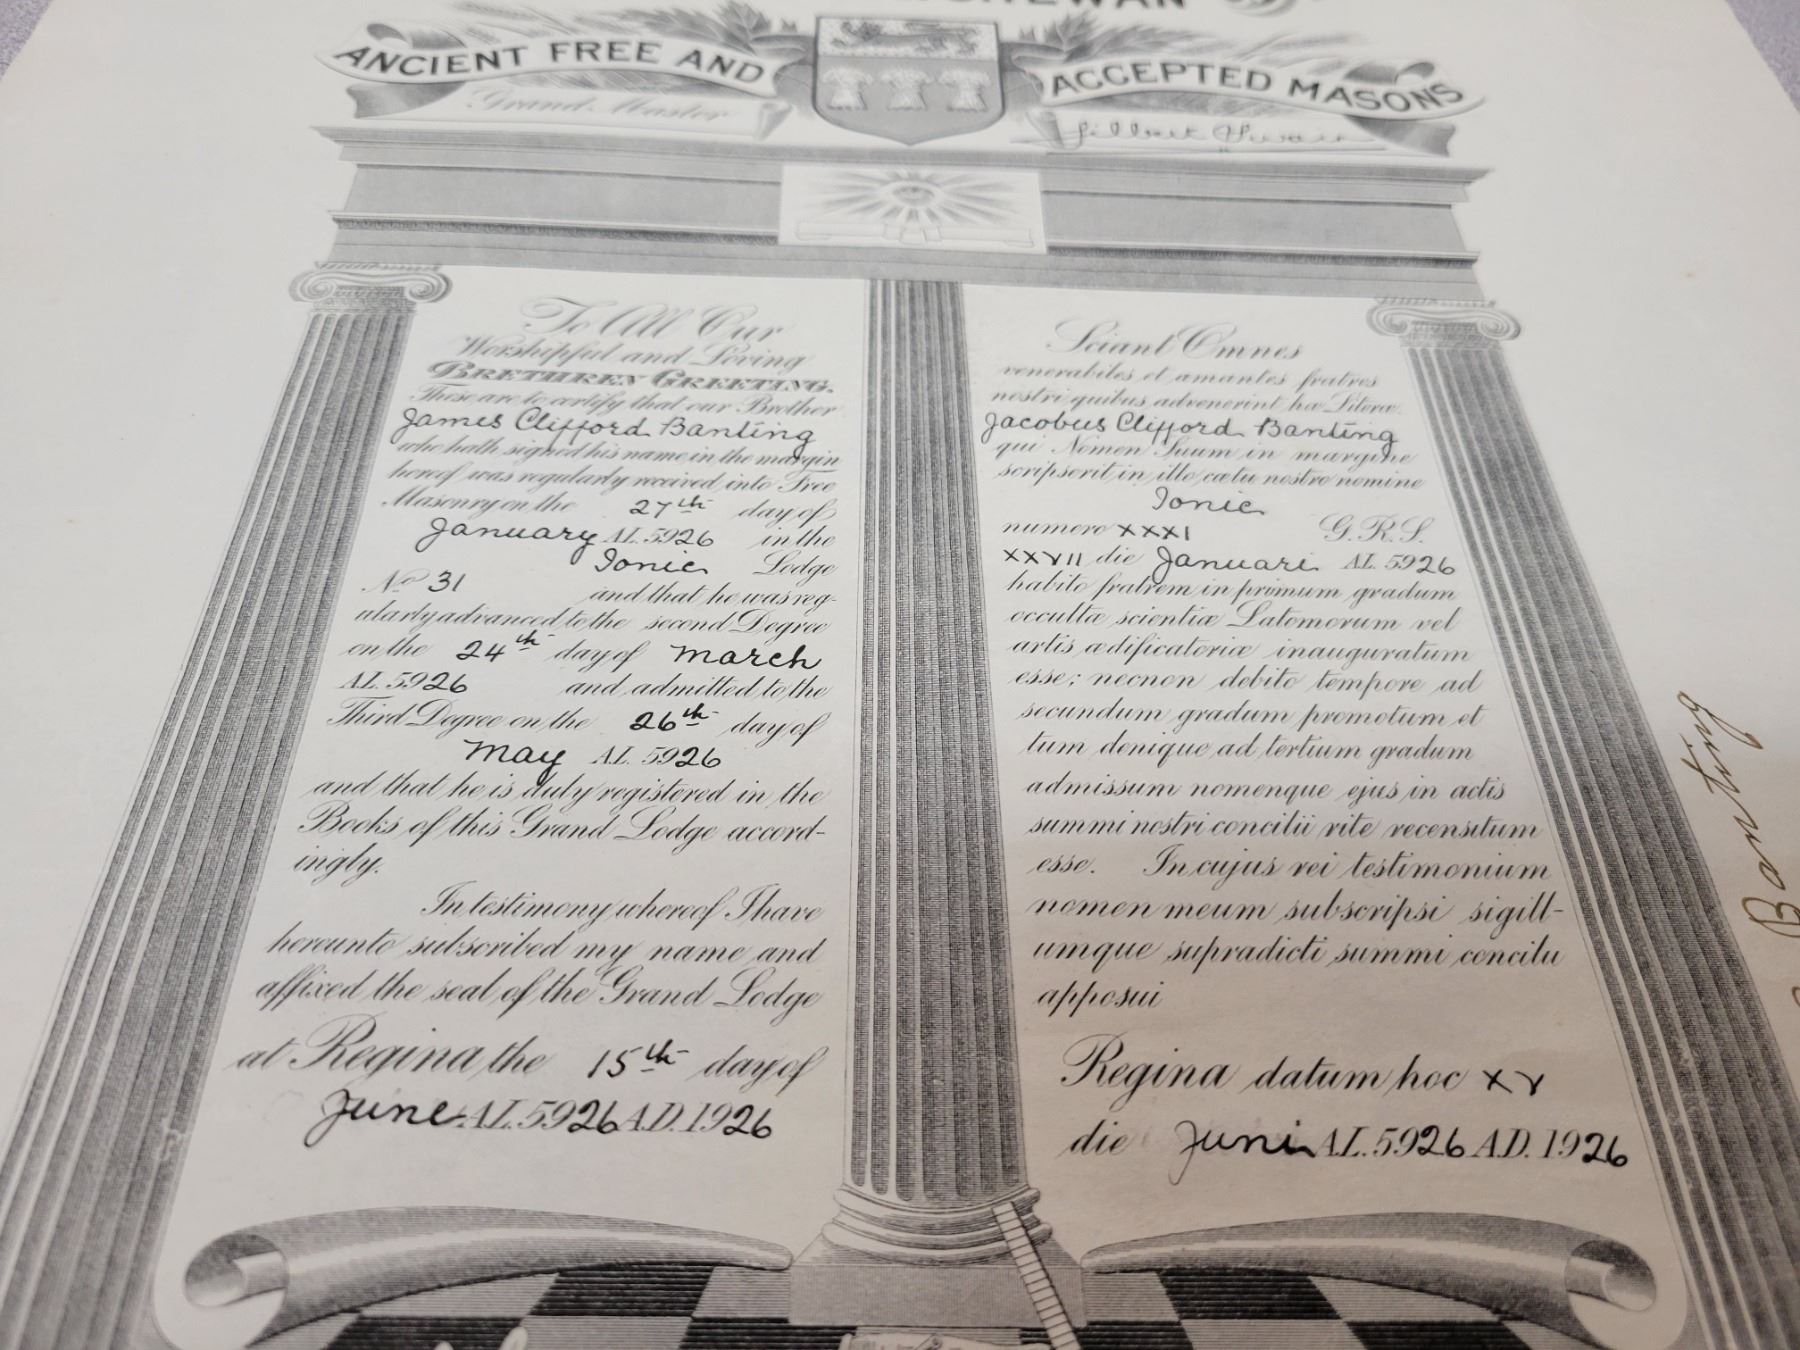 ANCIENT FREE AND ACCEPTED MASONS
Grand Master
To All Our
Worshipful and Loving
BRETHREN GREETING.
These are to certify that our Brother
James Clifford Banting
who hath signed his name in the margin
hereof was regularly received into Free
Masonry on the 27th day of
January AL. 5926 in the
Ionic Lodge
No 31 and that he was reg-
ularly advanced to the second Degree
on the 24th day of March
AL. 5926 and admitted to the
Third Degree on the 26th day of
May AL. 5926
and that he is duly registered in the
Books of this Grand Lodge accord-
ingly.
In testimony whereof I have
hereunto subscribed my name and
affixed the seal of the Grand Lodge
at Regina the 15th day of
June A.L. 5926 A.D. 1926
Sciant Omnes
venerabiles et amantes fratres
nostri quibus advenerint hæ Literæ.
Jacobus Clifford Banting
qui Nomen Suum in margine
scripserit in illo cœtu nostro nomine
Ionic
numero XXXI G.R.S.
XXVII die Januari AL. 5926
habito fratrem in primum gradum
occultæ scientiæ Latomorum vel
artis ædificatoriæ inauguratum
esse; necnon debito tempore ad
secundum gradum promotum et
tum denique ad tertium gradum
admissum nomenque ejus in actis
summi nostri concilii rite recensitum
esse. In cujus rei testimonium
nomen meum subscripsi sigill-
umque supradicti summi concilu
apposui
Regina datum hoc XV
die Juni A.L. 5926 A.D. 1926
Banting